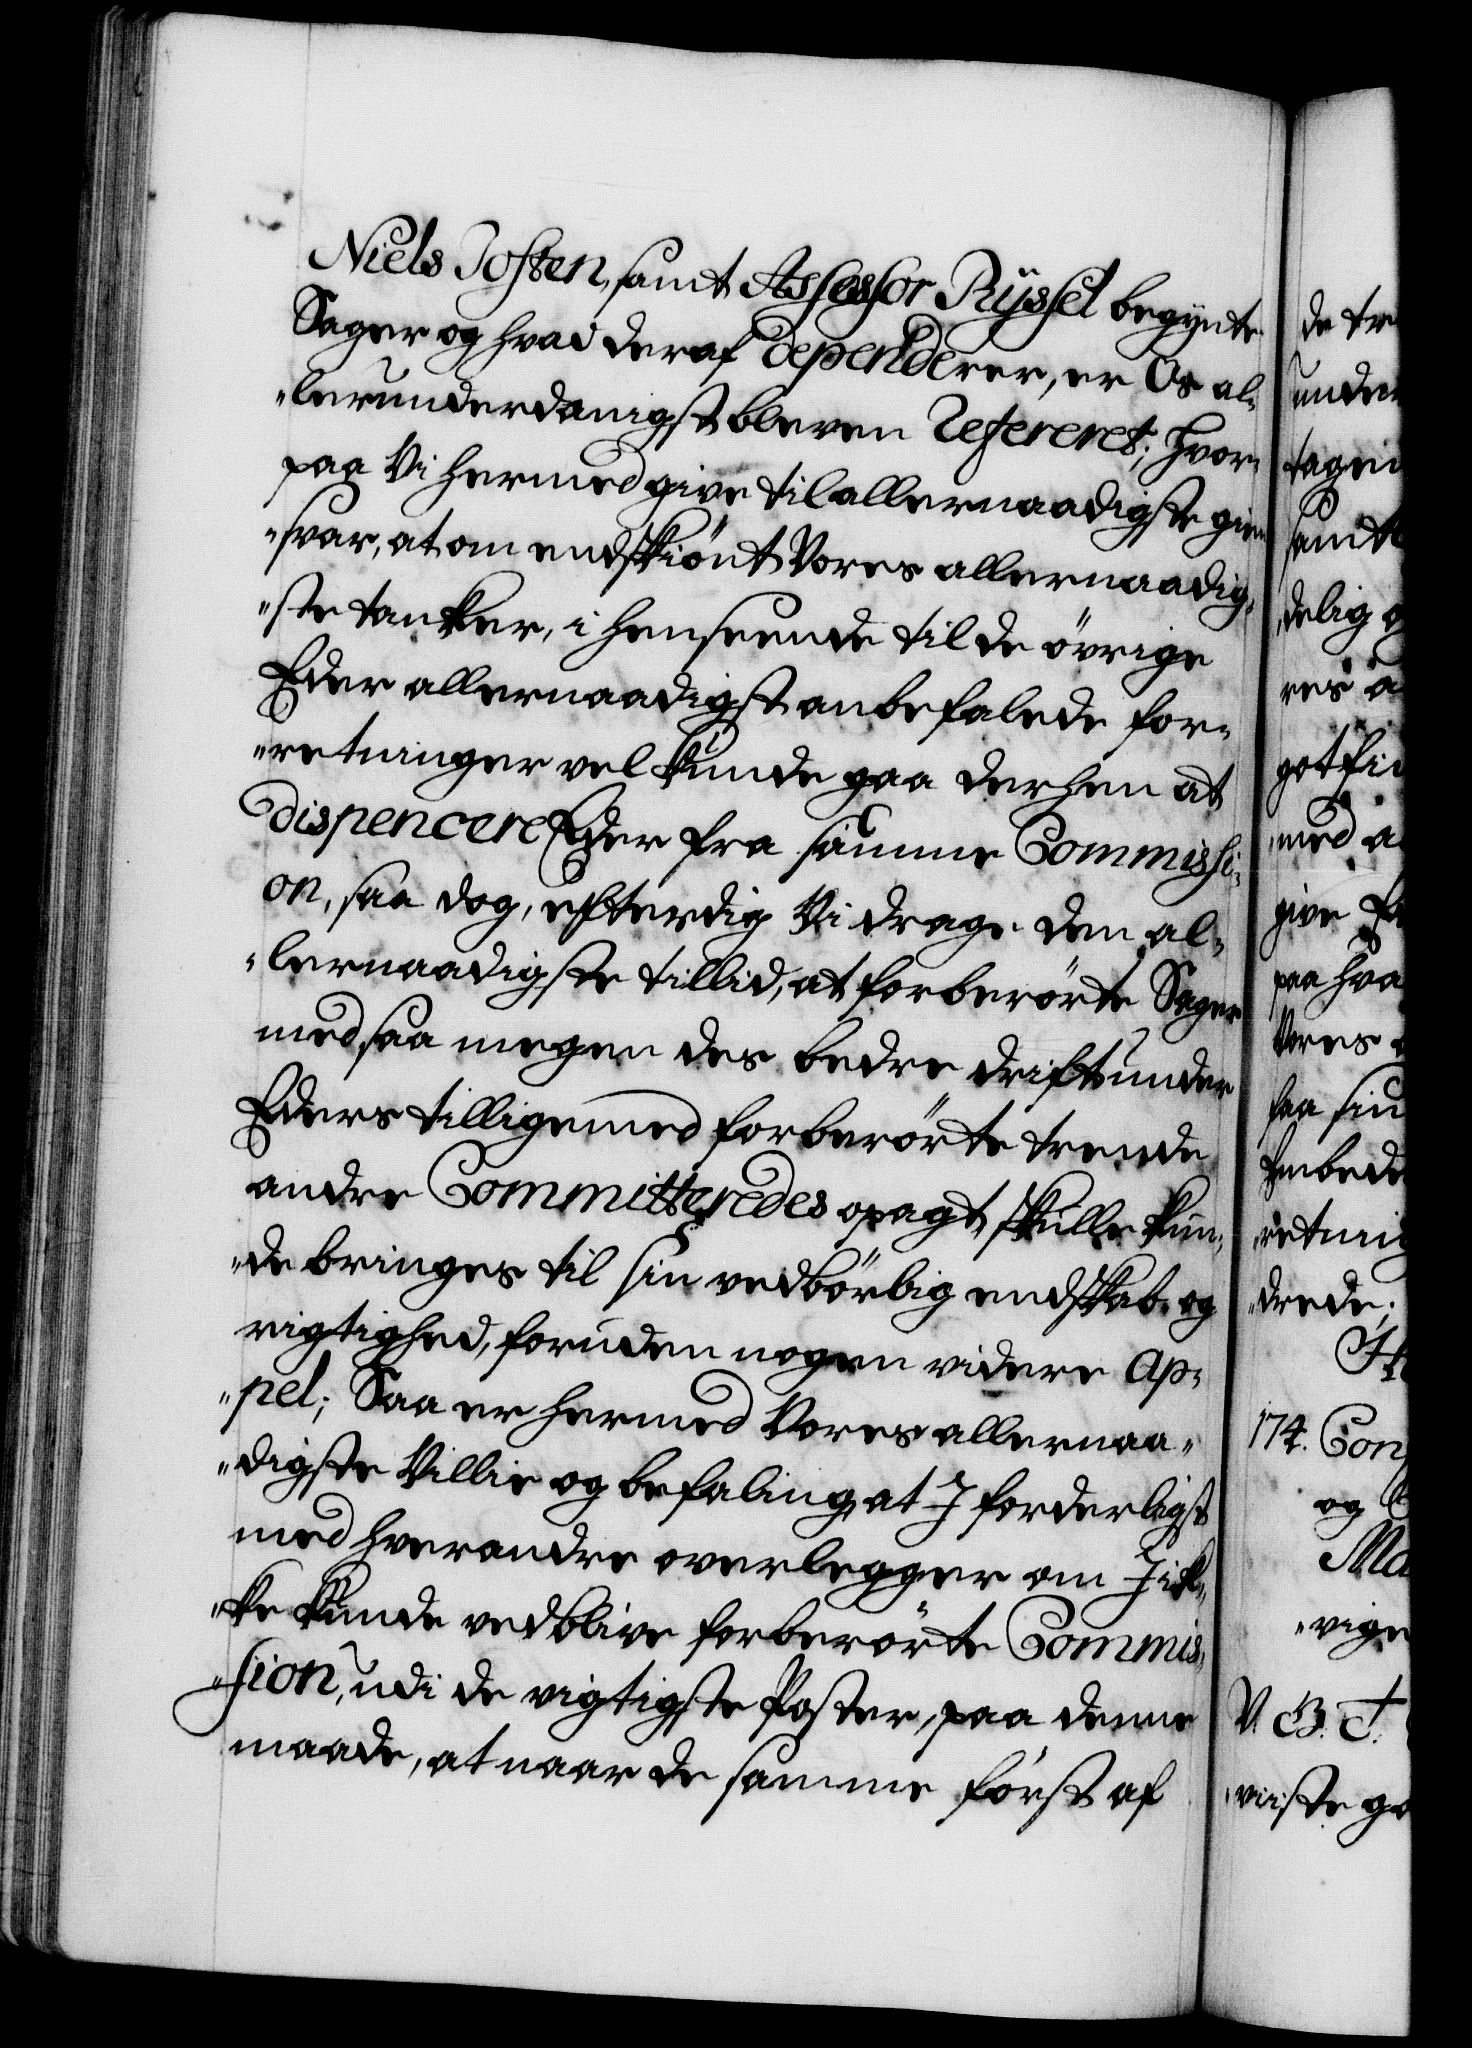 Niels Josten, samt Assessor Rÿssel begynte
Sager og hvad deraf dependerer, er Os al-
"lerunderdanigst bleven refereret; hvor-
paa Vi hermed give til allernaadigste gien-
"svar, at om endskiönt Vores allernaadig-
"ste tanker, i henseende til de övrige
Eder allernaadigst anbefalede for-
"retninger vel kunde gaa derhen at
dispencere Eder fra samme Commissi-
on, saa dog, efterdig Vi drage den al-
"lernaadigste tillid, at forberörte Sager
med saa megen des bedre drift under
Eders tilligemed forberörte trende
andre Committeredes opagt skulle kun-
"de bringes til sin vedbörlig endskab og
rigtighed, foruden nogen videre Ap-
"pel; Saa er hermed Vores allernaa-
"digste Villie og befaling, at I forderligst
med hverandre overlegger om I ik-
"ke kunde vedblive forberörte Commis-
"sion, udi de vigtigste Poster, paa denne
maade, at naar de samme först af
de tr
under
tagen
samt
delig o
res a
got fi
med a
give
paa hva
Vores
saa siu
Embede
"retni
"drede;
174. Con
og
Ma
"vige
V. G. T.
"viiste go